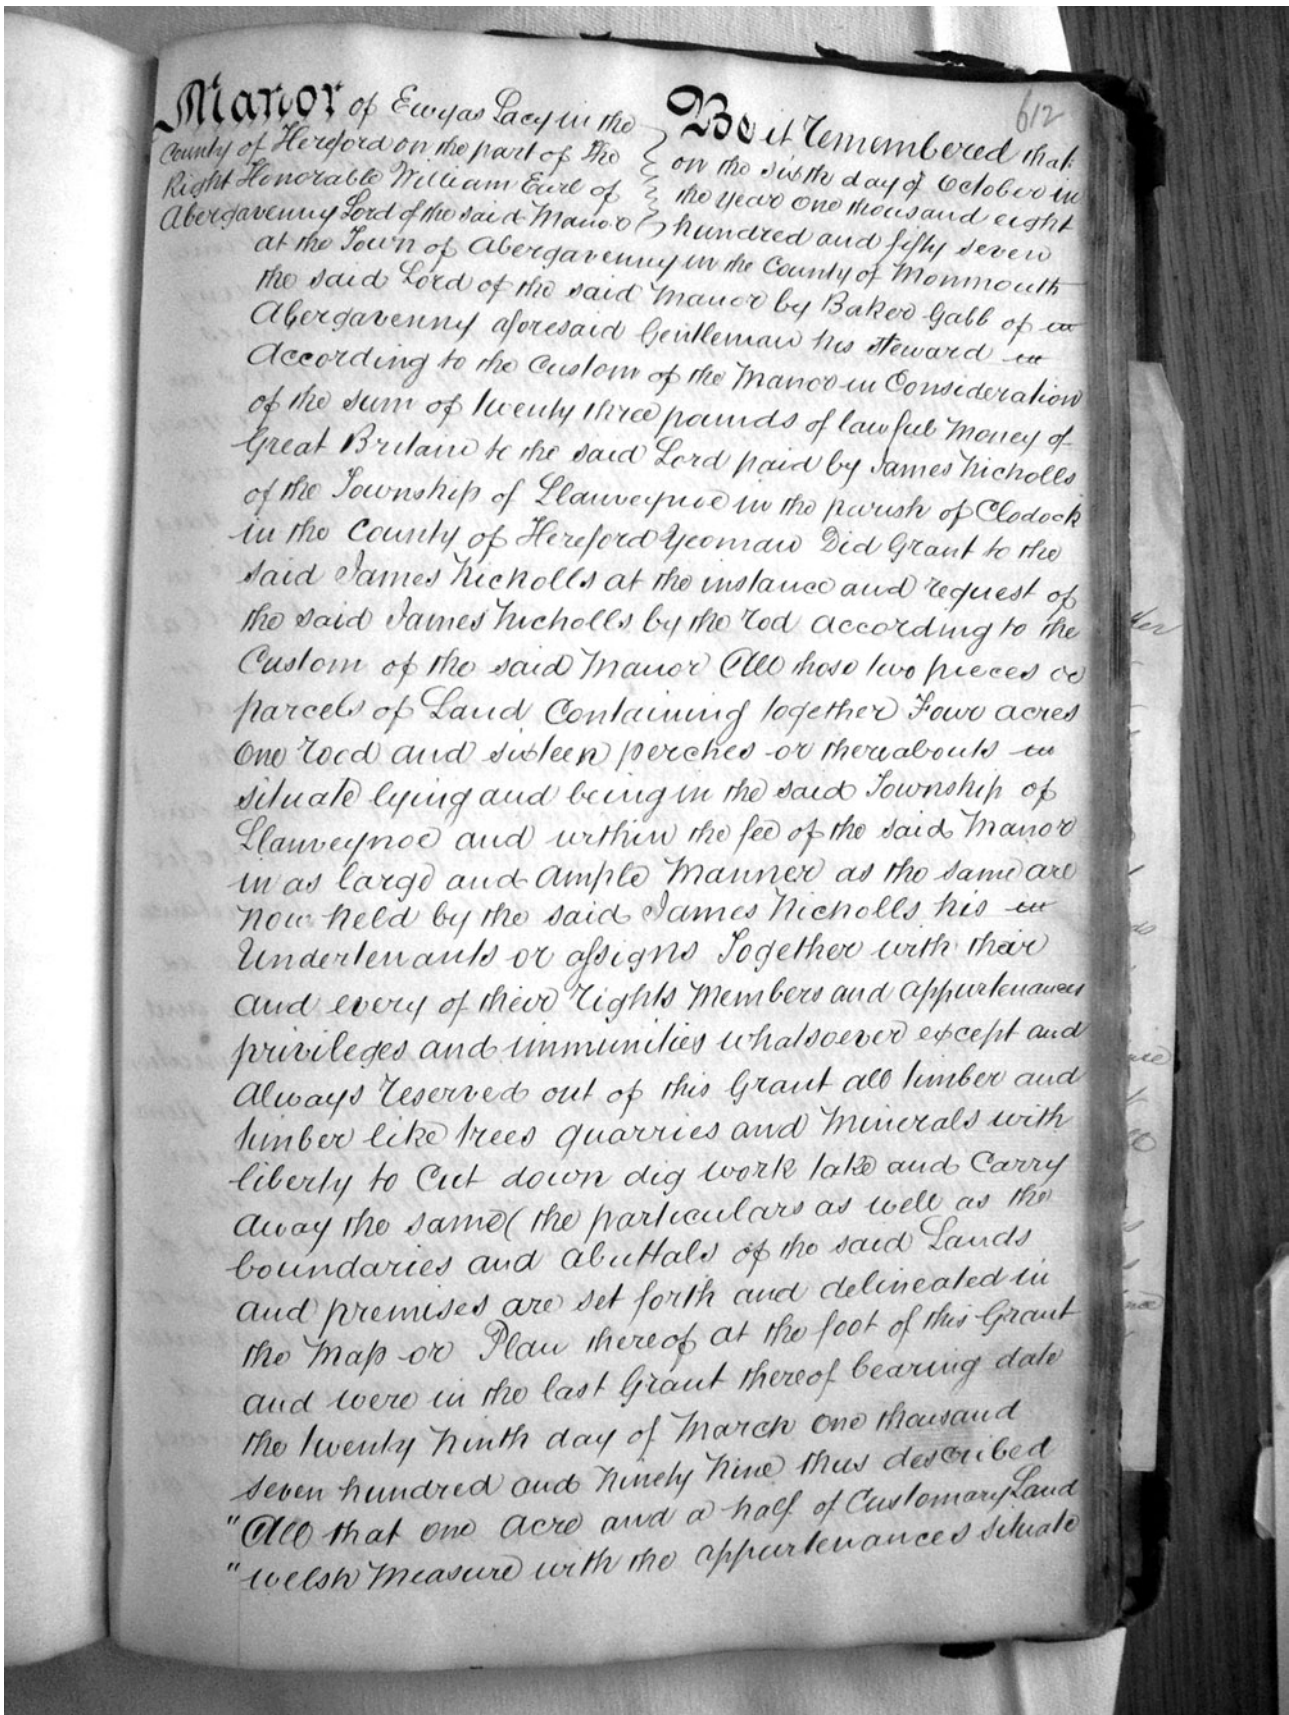 612
Manor of Ewyas Lacy in the
County of Hereford on the part of the
Right Honorable William Earl of
Abergavenny Lord of the said Manor
Be it remembered that
on the sixth day of October in
the Year One thousand eight
hundred and fifty seven
at the Town of Abergavenny in the County of Monmouth
the said Lord of the said Manor by Baker Gabb of
Abergavenny aforesaid Gentleman his Steward
According to the Custom of the Manor in Consideration
of the sum of twenty three pounds of lawful Money of
Great Britain to the said Lord paid by James Nicholls
of the Township of Llanveynoe in the parish of Clodock
in the County of Hereford Yeoman Did Grant to the
said James Nicholls at the instance and request of
the said James Nicholls by the rod according to the
Custom of the said Manor All those two pieces or
parcels of Land Containing together Four acres
One rood and sixteen perches or thereabouts
situate lying and being in the said Township of
Llanveynoe and within the fee of the said Manor
in as large and ample Manner as the same are
now held by the said James Nicholls his
Undertenants or assigns Together with their
and every of their rights Members and appurtenances
privileges and immunities whatsoever except and
Always reserved out of this Grant all timber and
timber like trees quarries and Minerals with
liberty to Cut down dig work take and Carry
away the same (the particulars as well as the
boundaries and abuttals of the said Lands
and premises are set forth and delineated in
the Map or Plan thereof at the foot of this Grant
and were in the last Grant thereof bearing date
the twenty Ninth day of March One thousand
seven hundred and Ninety Nine thus described
"All that one Acre and a half of Customary Land
"Welsh Measure with the appurtenances situate